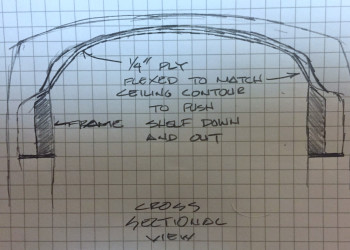 1/4" PLY
FLEXED TO MATCH
CEILING CONTOUR
TO PUSH
FRAME SHELF DOWN
AND OUT
CROSS
SECTIONAL
VIEW